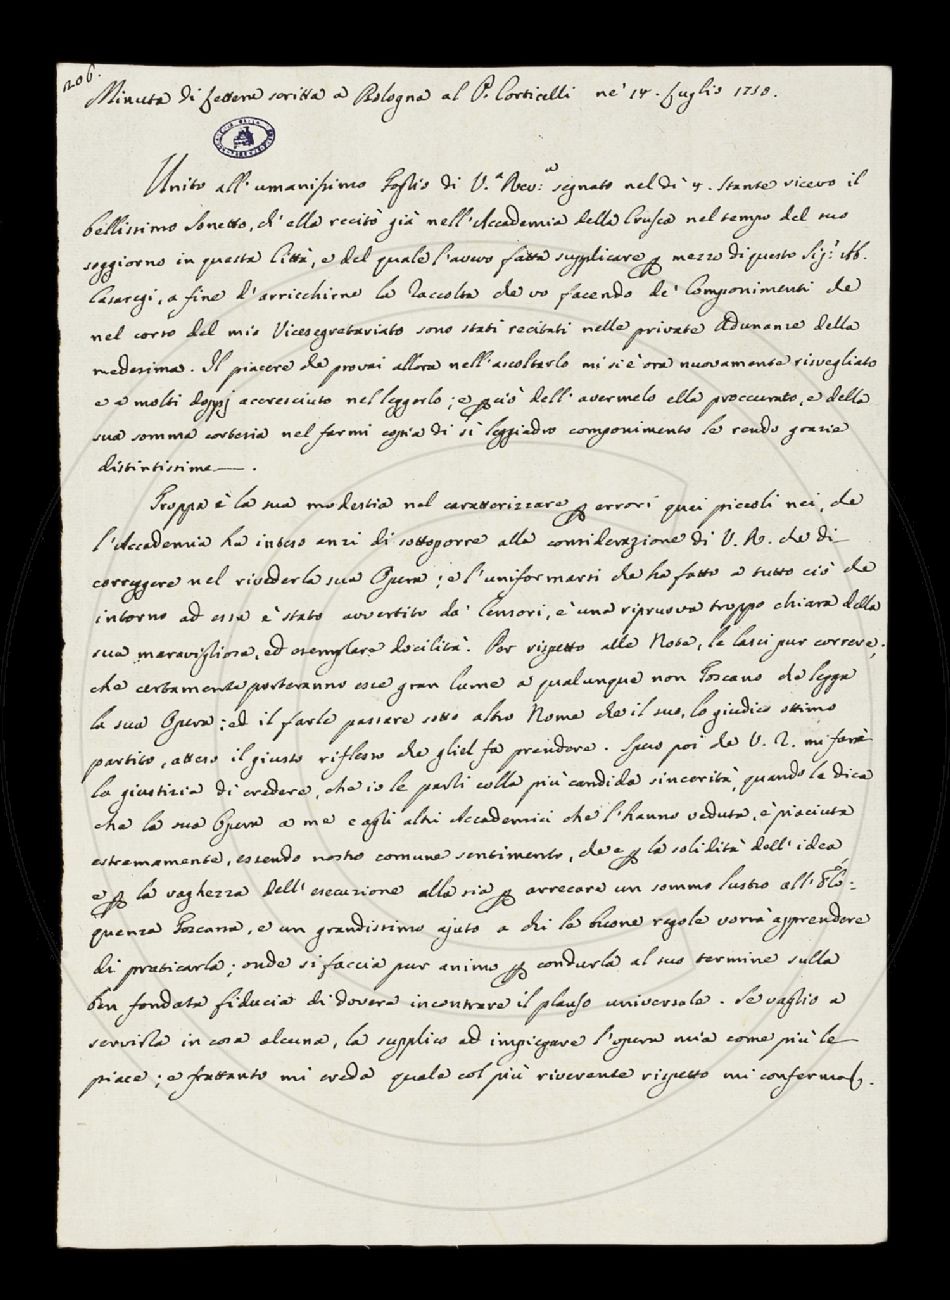 206.
Minuta di Lettera scritta a Bologna al P. Corticelli ne' 14. Luglio 1750.
Unito all'umanissimo Foglio di V.ª Rev:ª segnato nel dì 4. stante ricevo il
bellissimo Sonetto, ch'ella recitò già nell'Accademia della Crusca nel tempo del suo
soggiorno in questa Città, e del quale l'avevo fatta supplicare p mezzo di questo Sig.r Ab.
Casaregi, a fine d'arricchirne la Raccolta che vo facendo de' Componimenti che
nel corso del mio Vicesegretariato sono stati recitati nelle private Adunanze della
medesima. Il piacere che provai allora nell'ascoltarlo mi si è ora nuovamente risvegliato
e a molti doppj accresciuto nel leggerlo; e p ciò dell'avermelo ella proccurato, e della
sua somma cortesia nel farmi copia di sì leggiadro componimento le rendo grazie
distintissime.
Troppa è la sua modestia nel caratterizzare p errori quei piccoli nei, che
l'Accademia ha inteso anzi di sottoporre alla considerazione di V. R. che di
correggere nel rivederla sua Opera; e l'uniformarsi che ha fatto a tutto ciò che
intorno ad essa è stato avvertito da' Censori, è una ripruova troppo chiara della
sua maravigliosa, ed esemplare docilità. Per rispetto alle Note, le lasci pur correre,
che certamente porteranno esse gran lume a qualunque non Toscano che legga
la sua Opera; ed il farle passare sotto altro Nome che il suo, lo giudico ottimo
partito, atteso il giusto riflesso che gliel fa prendere. Spero poi che V. R. mi farà
la giustizia di credere, che io le parli colla più candida sincerità, quando le dica
che la sua Opera a me e agli altri Accademici che l'hanno veduta, è piaciuta
estremamente, essendo nostro comune sentimento, che e p la solidità dell'idea,
e p la vaghezza dell'esecuzione alla sia p arrecare un sommo lustro all'Elo=
quenza Toscana, e un grandissimo ajuto a chi le buone regole vorrà apprendere
di praticarla; onde si faccia pur animo p condurla al suo termine sulla
ben fondata fiducia di dovere incontrare il plauso universale. Se vaglio a
servirla in cosa alcuna, la supplico ad impiegare l'opera mia come più le
piace; e frattanto mi creda quale col più riverente rispetto mi confermo.